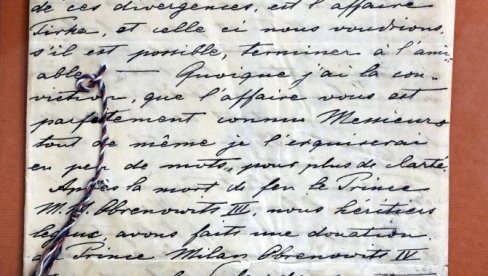 de ces divergences, est l'affaire
Tirka, et celle ci nous voudrions,
s'il est possible, terminer à l'ami-
able. — Quoique j'ai la con-
viction, que l'affaire vous est
parfaitement connue Messieurs
tout de même je l'esquiserai
en peu de mots, pour plus de clarté.
Après la mort de feu le Prince
M. M. Obrenowits III, nous héritiers
avons faits une donation
Prince Milan Obrenowits IV